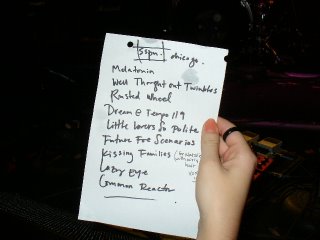 SSPU. chicago.
Melatonin
Well Thought out Twinkles
Rusted Wheel
Dream @ Tempo 119
Little Lovers So Polite
Future Foe Scenarios
Kissing Families
Lazy Eye
Common Reactor